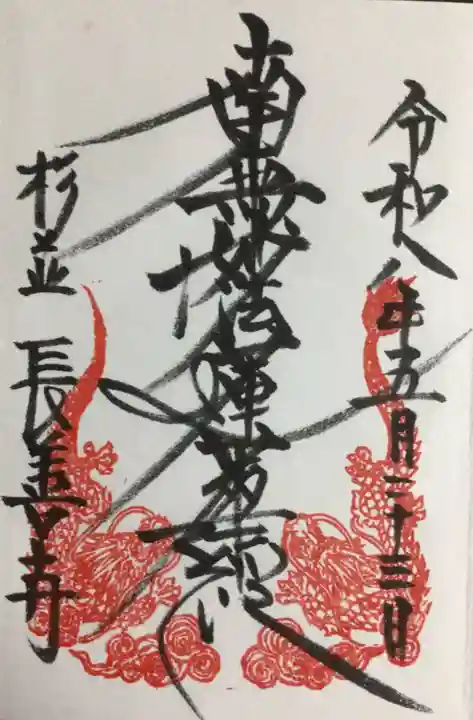 令和八年五月二十三日
南無妙法蓮華経
杉並 長善寺